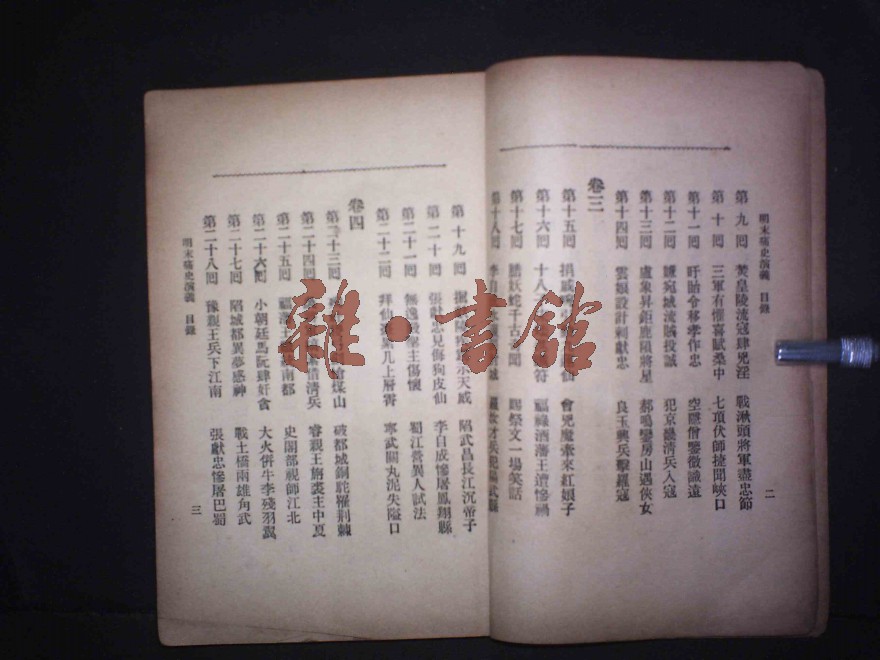 明末痛史演義 目錄
二
第九回 焚皇陵流寇肆兇淫 戰湫頭將軍盡忠節
第十回 三軍有懼喜賦桑中 七項伏師捷聞峽口
第十一回 盱眙令移孝作忠 空隱僧鑒微識遠
第十二回 宛城流賊投誠 犯京畿清兵入寇
第十三回 盧象昇鉅鹿隕將星 都鳴鑾房山遇俠女
第十四回 雲順設計刺獻忠 良玉興兵擊羅寇
卷三
第十五回 捐 仙 會兇魔牽來紅娘子
第十六回 十八 符 福祿酒藩王遭慘禍
第十七回 妖蛇千古 聞 賜祭文一場笑話
第十八回 李自
第十九回 示天威 陷武昌長江沉帝子
第二十回 張獻忠兒侮狗皮仙 李自成慘屠鳳翔縣
第二十一回 無逸 王傷懷 蜀江營異人試法
第二十二回 拜仙 几上屠害 寧武關丸泥失隘口
卷四
第二十三回 煤山 破都城銅駝罹荆棘
第二十四回 借清兵 睿親王 裘主中夏
第二十五回 福 南都 史閣部視師江北
第二十六回 小朝廷馬阮肆奸貪 大火併牛李殘羽翼
第二十七回 陷城都異夢感神 戰土橋兩雄角武
第二十八回 豫親王兵下江南 張獻忠慘屠巴蜀
明末痛史演義 目錄
三
雜·書館